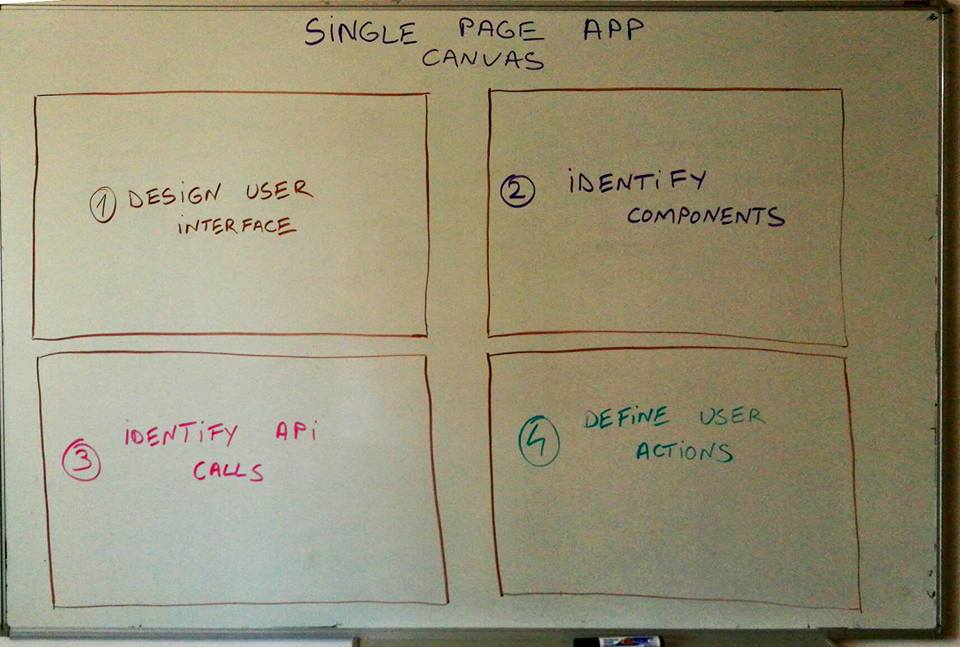 SiNGLE PAGE APP
CANVAS
1 DESIGN USER
iNTERFACE
2 iDENTiFY
COMPONENTS
3 iDENTiFY APi
CALLS
4 DEFiNE USER
ACTiONS